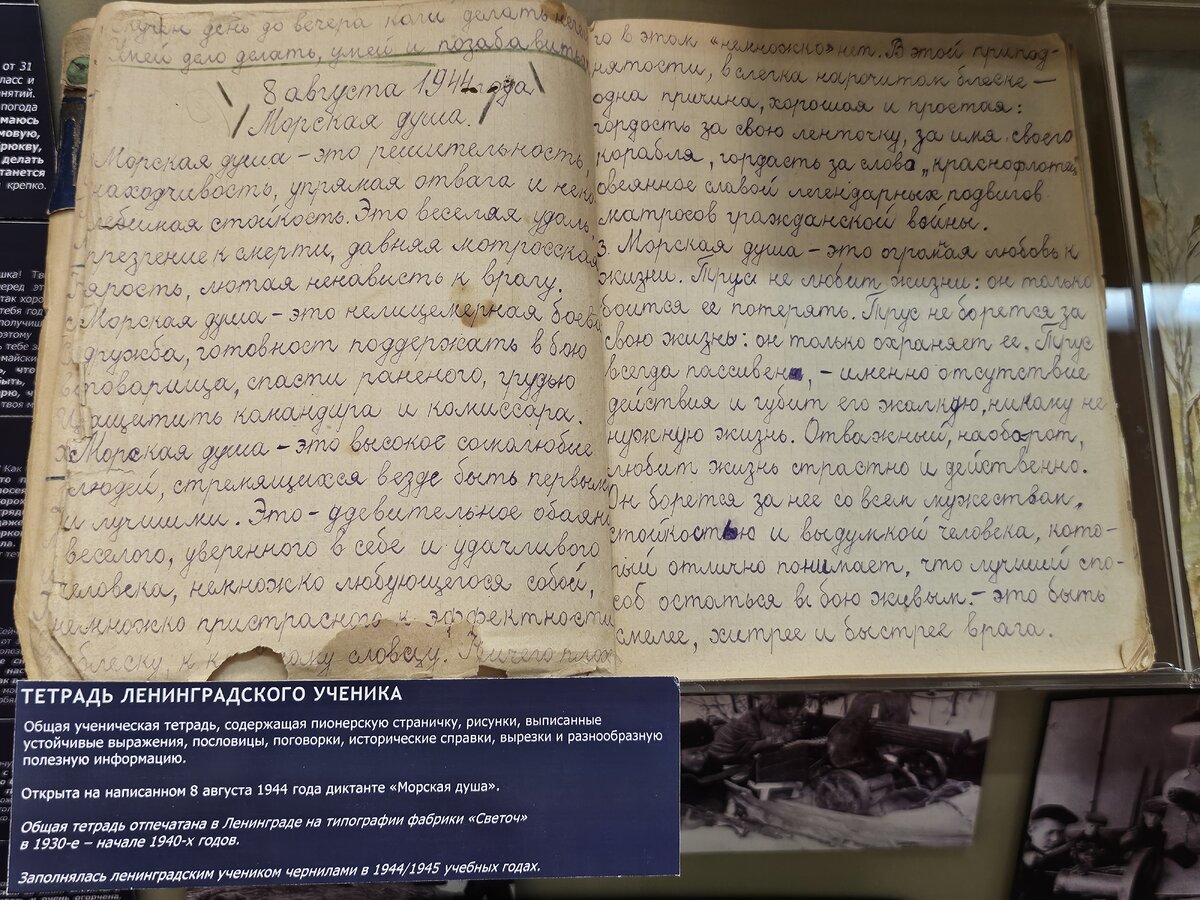 Скучен день до вечера коли делать нечего
Умей дело делать, умей и позабавиться
8 августа 1944 года
Морская душа.
Морская душа – это решительность,
находчивость, упрямая отвага и непо
лебимая стойкость. Это веселая удаль,
презрение к смерти, давняя мотросская
ярость, лютая ненависть к врагу.
Морская душа – это нелицемерная боевая
дружба, готовност поддержать в бою
товарища, спасти раненого, грудью
защитить командира и комиссара.
Морская душа – это высокое самалюбие
людей, стремящихся везде быть первыми
и лучшими. Это – удевительное обаян
веселого, уверенного в себе и удачливого
человека, немножко любующегося собой,
немножко пристрасного к эффектности
блеску, к словцу. Ничего плох
го в этом «немножко» нет. В этой припод-
нятости, в слегка нарочитом блеске –
одна причина, хорошая и простая:
гордость за свою ленточку, за имя своего
корабля, гордасть за слова „краснофлотец
овеянное славой легендарных подвигов
матросов гражданской войны.
З. Морская душа – это огромая любовь к
жизни. Трус не любит жизни: он только
боится ее потерять. Трус не борется за
свою жизнь: он только охраняет ее. Трус
всегда пассивен, – именно отсутствие
действия и губит его жалкую, никому не
нужную жизнь. Отважный, наоборот,
любит жизнь страстно и действенно.
Он борется за нее со всем мужеством,
стойкостью и выдумкой человека, кото-
рый отлично понимает, что лучший спо-
соб остаться в бою живым. – это быть
смелее, хитрее и быстрее врага.
ТЕТРАДЬ ЛЕНИНГРАДСКОГО УЧЕНИКА
Общая ученическая тетрадь, содержащая пионерскую страничку, рисунки, выписанные
устойчивые выражения, пословицы, поговорки, исторические справки, вырезки и разнообразную
полезную информацию.
Открыта на написанном 8 августа 1944 года диктанте «Морская душа».
Общая тетрадь отпечатана в Ленинграде на типографии фабрики «Светоч»
в 1930-е – начале 1940-х годов.
Заполнялась ленинградским учеником чернилами в 1944/1945 учебных годах.